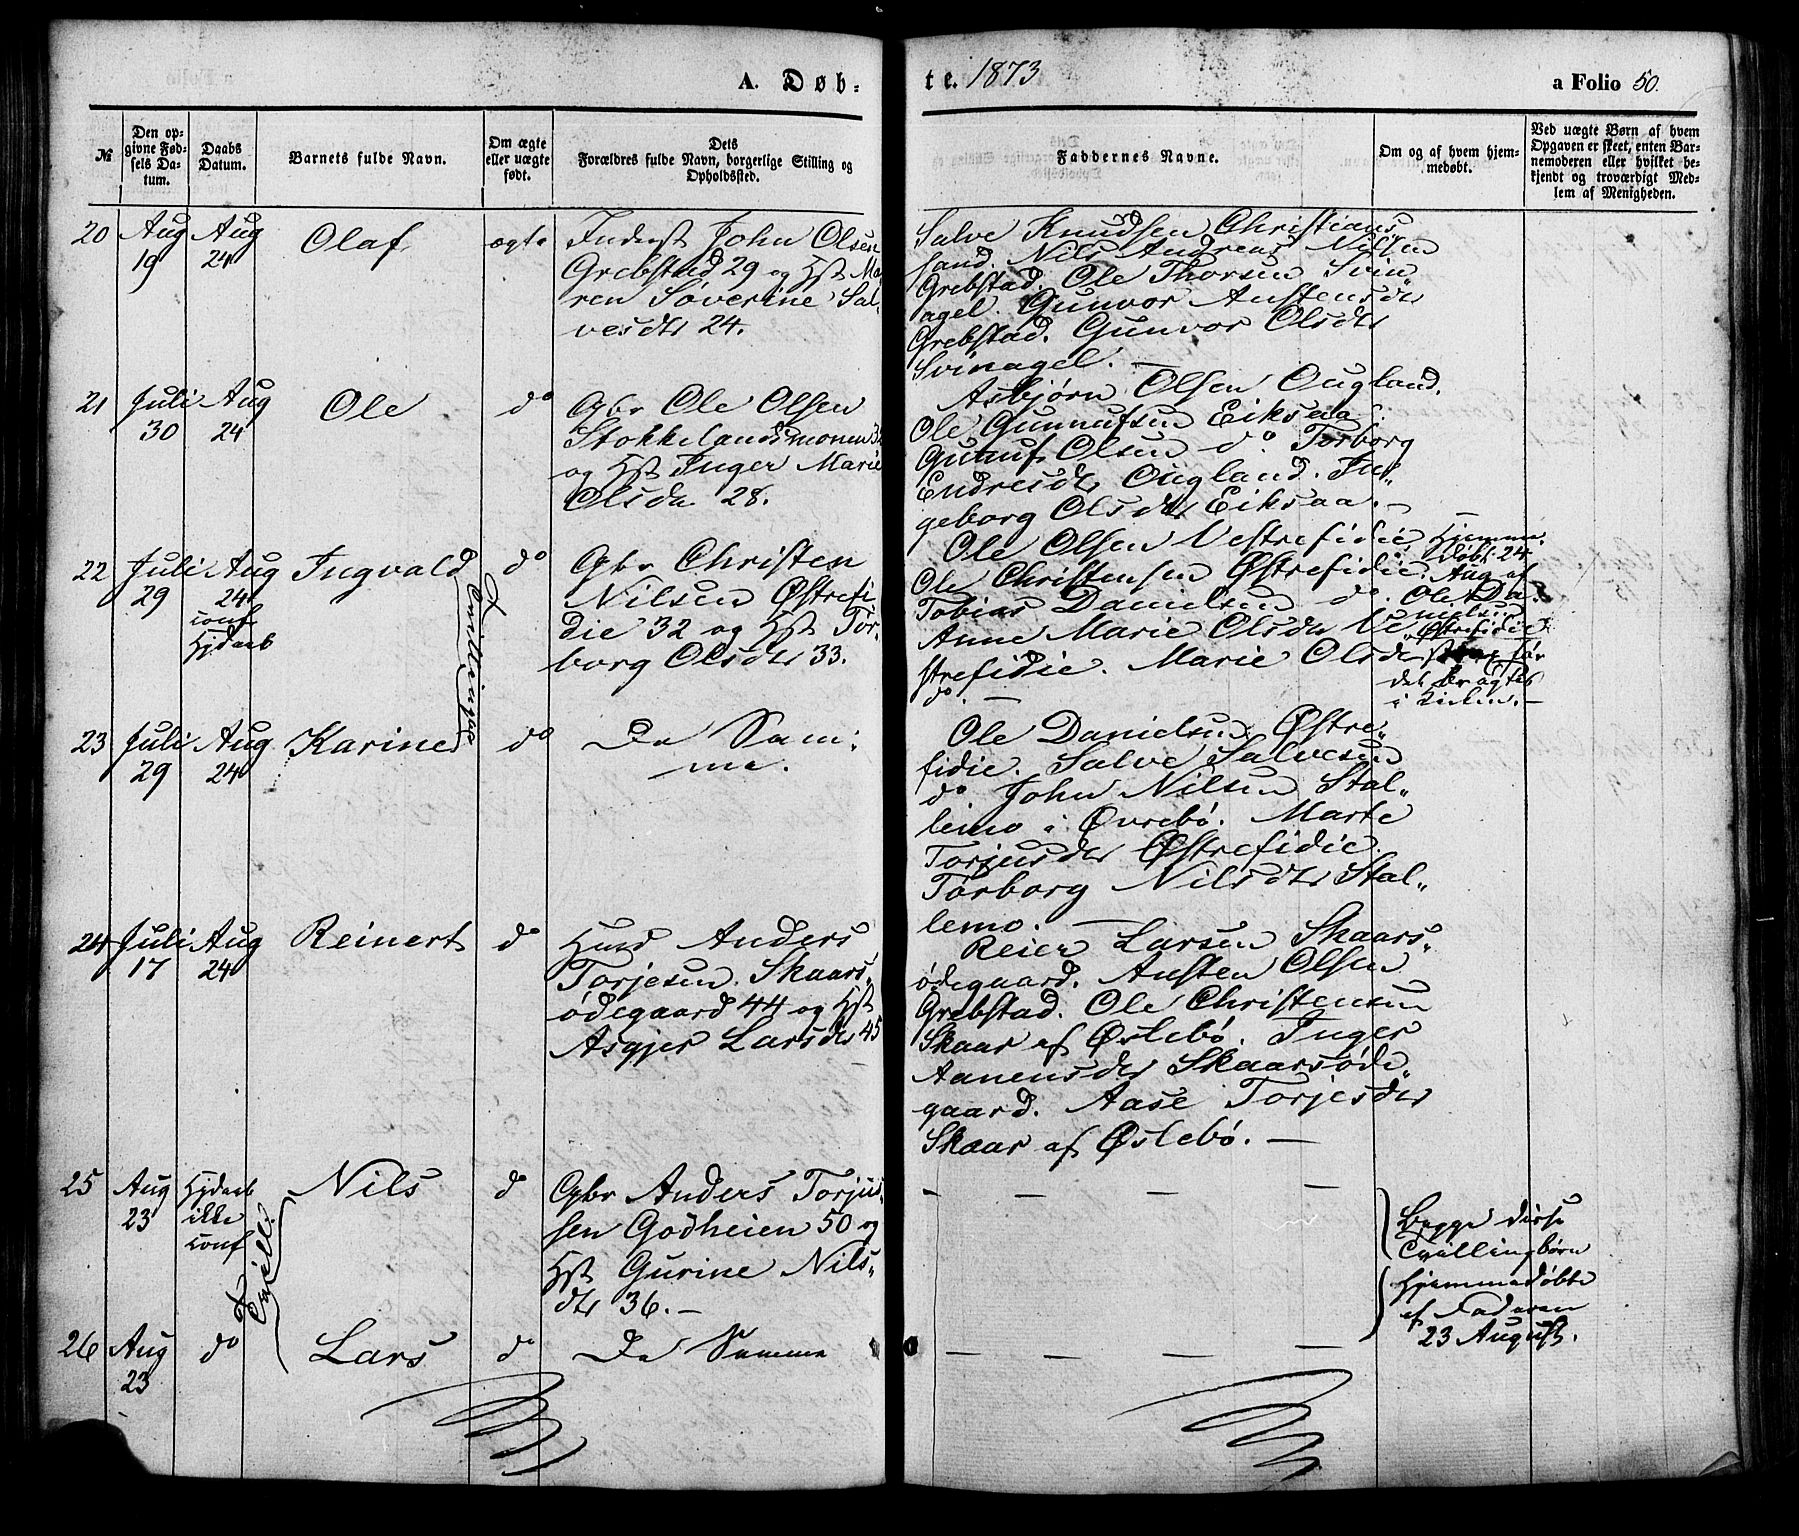 A. Døb-
te. 1873
a Folio 50.
№
Den op-
givne Fød-
sels Da-
tum.
Daabs
Datum.
Barnets fulde Navn.
Om ægte
eller uægte
født.
Dets
Forældres fulde Navn, borgerlige Stilling og
Opholdssted.
Faddernes Navne.
Om og af hvem hjem-
medøbt.
Ved uægte Børn af hvem
Opgaven er skeet, enten Bar-
nemoderen eller hvilket be-
kjendt og troværdigt Med-
lem af Menigheden.
20
Aug
19
Aug
24
Olaf
ægte
Inderst John Olsen
Grebstad 29 og Hst Ma
ren Severine Sal
vesdtr 24.
Salve Knudsen Christians
sand. Nils Andreas Nilsen
Grebstad. Ole Thorsen Svin
agel. Gunvor Austensdtr
Grebstad. Gunvor Olsdtr
Svinagel. —
21
Juli
30
Aug
24
Ole
do
Gbr Ole Olsen
Stokkelandsmonen
og Hst Inger Marie
Olsdtr 28.
Asbjørn Olsen Ougland.
Ole Gunnufsen Eiksaa.
Gunuf Olsen do. Torborg
Endresdtr Ougland. In-
geborg Olsdtr Eiksaa. —
22
Juli
29
Aug
24
conf
Hjdaab
Ingvald
Tvillinger
do
Gbr Christen
Nilsen Østrefi
die 32 og Hst Tor-
borg Olsdtr 33.
Ole Olsen Vestrefidie
Ole Christensen Østrefidie.
Tobias Danielsen do.
Anne Marie Olsdtr Ve
strefidie. Marie Olsdtr
do. —
Hjemme-
døbt 24
Aug af
Ole Da-
nielsen
Østrefidie
før
det bragtes
i Kirken. —
23
Juli
29
Aug
24
Karine
do
De Sam-
me.
Ole Danielsen Østre-
fidie. Salve Salvesen
do. John Nilsen Stal-
lemo i Øvrebø. Marte
Torjusdtr Østrefidie.
Torborg Nilsdtr Stal-
lemo. —
24
Juli
17
Aug
24
Reinert
do
Husd Anders
Torjesen Skaars-
ødegaard 44 og Hst
Asgjer Larsdtr 45
Reier Larsen Skaars-
ødegaard. Austen Olsen
Grebstad. Ole Christensen
Skaar af Øslebø. Inger
Aanensdtr Skaarsøde-
gaard. Aase Torjesdtr
Skaar af Øslebø. —
25
Aug
23
Hjdaab
ikke
conf
Nils
do
Gbr Anders Torjus-
sen Godheien 50 og
Hst Gurine Nils-
dtr 36. —
— — — —
Begge disse
Tvillingbørn
Hjemmedøbte
af Faderen
23 August.
26
Aug
23
do
Lars
do
De Samme
— — — —